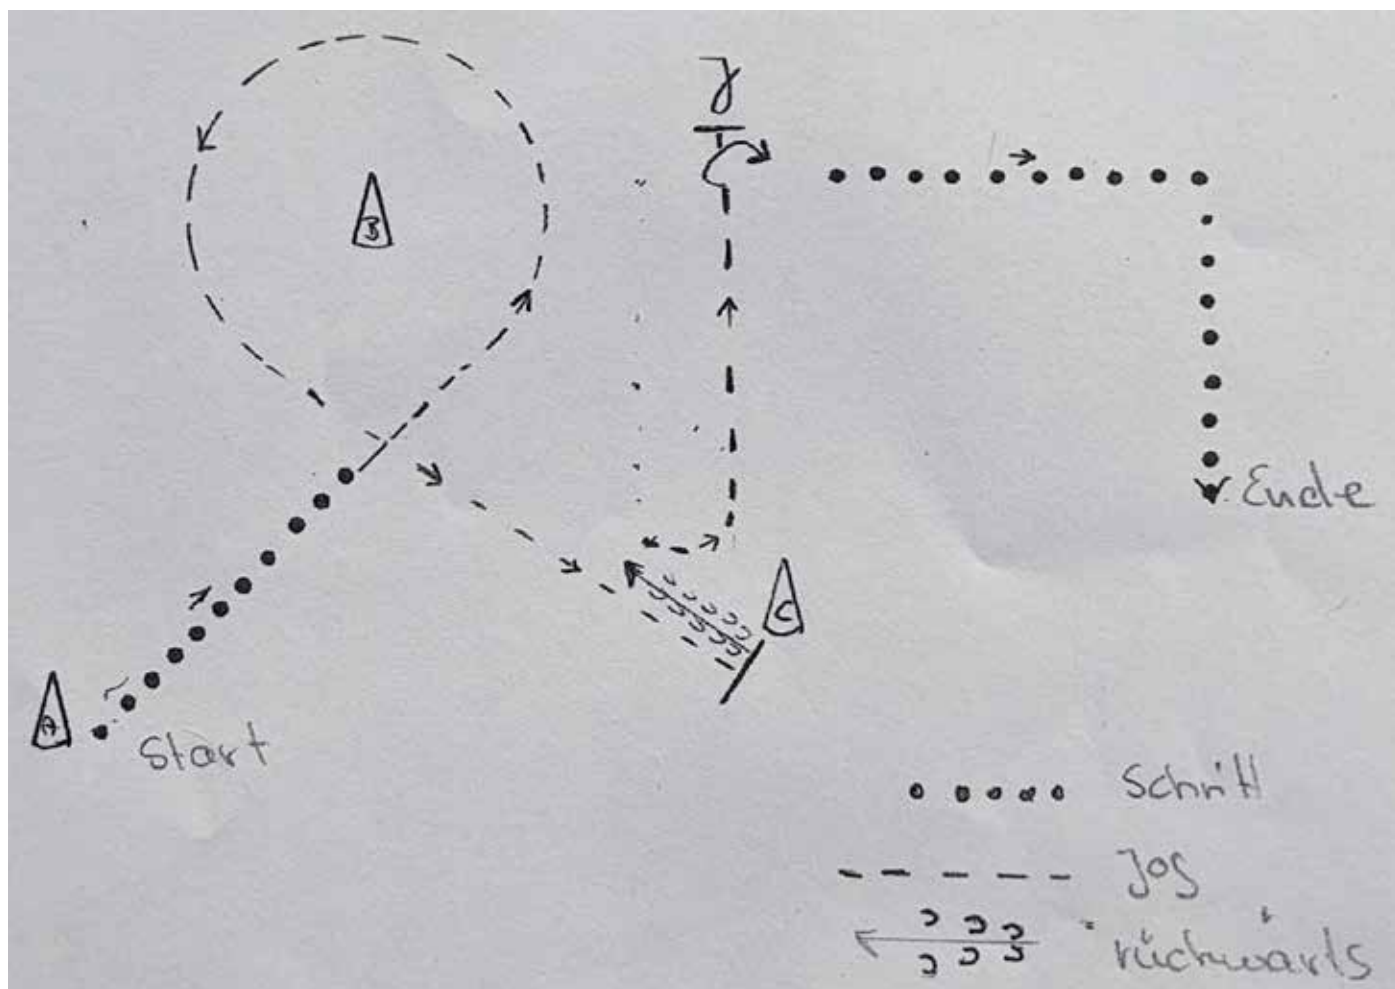 B
A
Start
C
Ende
Schritt
Jog
rückwärts